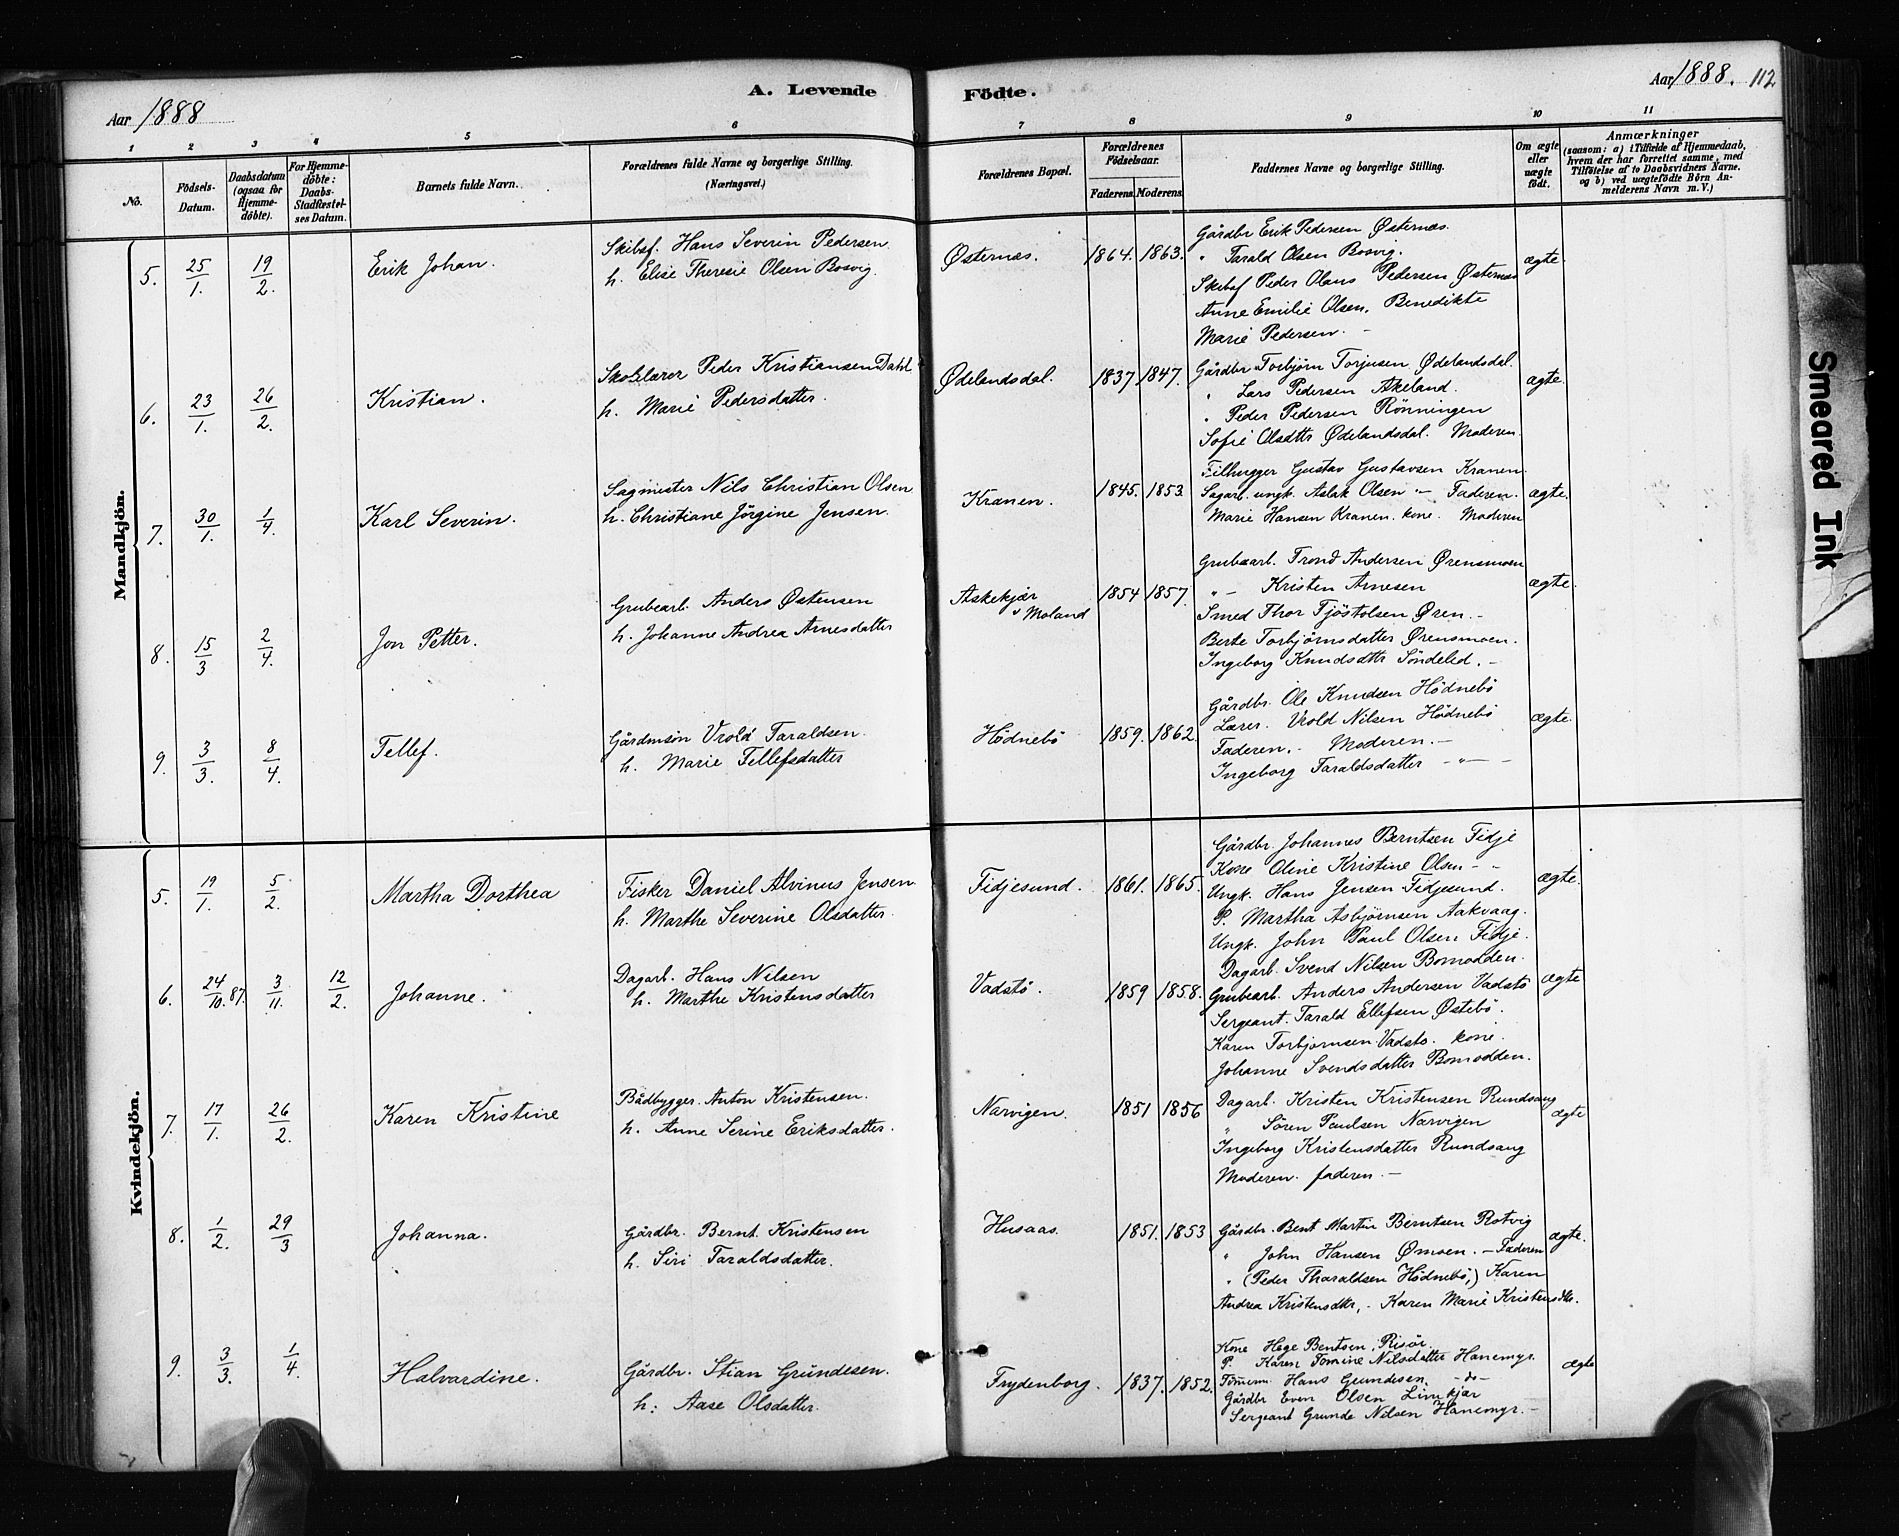 Aar 1888
A. Levende
Födte.
Aar 1888. 112
1 2 3 4 5 6 7 8 9 10 11
No.
Födsels-Datum.
Daabsdatum (ogsaa for Hjemme-döbte).
For Hjemme-döbte: Daabs-Stadfæstel-ses Datum.
Barnets fulde Navn.
Forældrenes fulde Navne og borgerlige Stilling. (Næringsvei.)
Forældrenes Bopæl.
Forældrenes Födselsaar.
Faderens. Moderens.
Faddernes Navne og borgerlige Stilling.
Om ægte eller uægte födt.
Anmærkninger
(saasom: a) i Tilfælde af Hjemmedaab, hvem der har forrettet samme, med Tilföielse af to Daabsvidners Navne. og b) ved uægtefödte Börn An-melderens Navn m. V.)
Mandkjön.
5. 25/1. 19/2. Erik Johan.
Skibsf. Hans Severin Pedersen
h. Elise Theresie Olsen Bosvig.
Østernæs. 1864. 1863.
Gårdbr Erik Pedersen Østernæs.
" Tarald Olsen Bosvig.
Skibsf Peder Olaus Pedersen Østernæs
Anne Emilie Olsen. Benedikte
Marie Pedersen. -
ægte.
6. 23/1. 26/2. Kristian.
Skolelærer Peder Kristiansen Dahl
h. Marie Pedersdatter.
Ødelandsdal. 1837 1847.
Gårdbr Torbjörn Torjusen Ødelandsdal.
" Lars Pedersen Akeland.
" Peder Pedersen Rönningen
Sofie Olsdttr Ødelandsdal. Moderen.
ægte.
7. 30/1. 1/4. Karl Severin.
Sagmester Nils Christian Olsen
h. Christiane Jörgine Jensen.
Kranen. 1845. 1853.
Filhugger Gustav Gustavsen Kranen.
Sagarb. ungk. Aslak Olsen " - Faderen.
Marie Hansen Kranen. kone. Moderen
ægte.
8. 15/3 2/4. Jon Petter.
Grubearb. Anders Østensen
h. Johanne Andrea Arnesdatter
Askekjær
" Moland
1854 1857.
Grubearb. Trond Andersen Ørensmoen
" - Kristen Arnesen
Smed Thor Tjöstolsen Øren. -
Berte Torbjörnsdatter Ørensmoen.
Ingeborg Knudsdttr Söndeled. -
ægte.
9. 3/3. 8/4. Tellef.
Gårdmsön Vrold Taraldsen.
h. Marie Tellefsdatter
Hödnebö 1859. 1862.
Gårdbr. Ole Knudsen Hödnebö
Lærer. Vrold Nilsen Hödnebö
Faderen. - Moderen. -
Ingeborg Taraldsdatter - " -
ægte.
Kvindekjön.
5. 19/1. 5/2. Martha Dorthea
Fisker Daniel Alvinus Jensen
h. Marthe Severine Olsdatter.
Fidjesund. 1861. 1865.
Gårdbr. Johannes Berntsen Fidje
Kone Oline Kristine Olsen - -
Ungk. Hans Jensen Fidjesund.
P. Martha Asbjörnsen Aakvaag.
Ungk. John Paul Olsen Fidje.
ægte.
6. 24/10. 87. 3/11. 12/2. Johanne.
Dagarb. Hans Nilsen
h. Marthe Kristensdatter
Vadstö. 1859 1858.
Dagarb. Svend Nilsen Bomodden.
Grubearb. Anders Andersen Vadstö
Sergeant. Tarald Ellefsen Østebö.
Karen Torbjornsen Vadsto. kone.
Johanne Svendsdatter Bomodden.
ægte
7. 17/1. 26/2. Karen Kristine
Bådbygger. Anton Kristensen.
h. Anne Serine Eriksdatter.
Narvigen. 1851 1856
Dagarb. Kristen Kristensen Rundsang
" Sören Paulsen Narvigen
Ingeborg Kristensdatter Rundsang
Moderen. faderen. -
ægte
8. 1/2. 29/3 Johanna.
Gårdbr. Bernt. Kristensen
h. Siri Taraldsdatter.
Husaas. 1851. 1853
Gårdbr. Bent Martin Berntsen Rotvig
" John Hansen Ømoen. - Faderen
" (Peder Tharaldsen Hödnebö,) Karen
Andrea Kristensdttr, - Karen Marie Kristensdtr.
ægte.
9. 3/3. 1/4. Halvardine.
Gårdbr. Stian Grundesen.
h: Aase Olsdatter.
Frydenborg. 1837. 1852.
Kone Hege Bentsen, Risör.
P. Karen Tomine Nilsdatter Hanemyr.
Tömmm. Hans Grundesen. -do-
Gårdbr Even Olsen Limkjær
Sergeant Grunde Nilsen Hanemyr. -
ægte
Smeared Ink